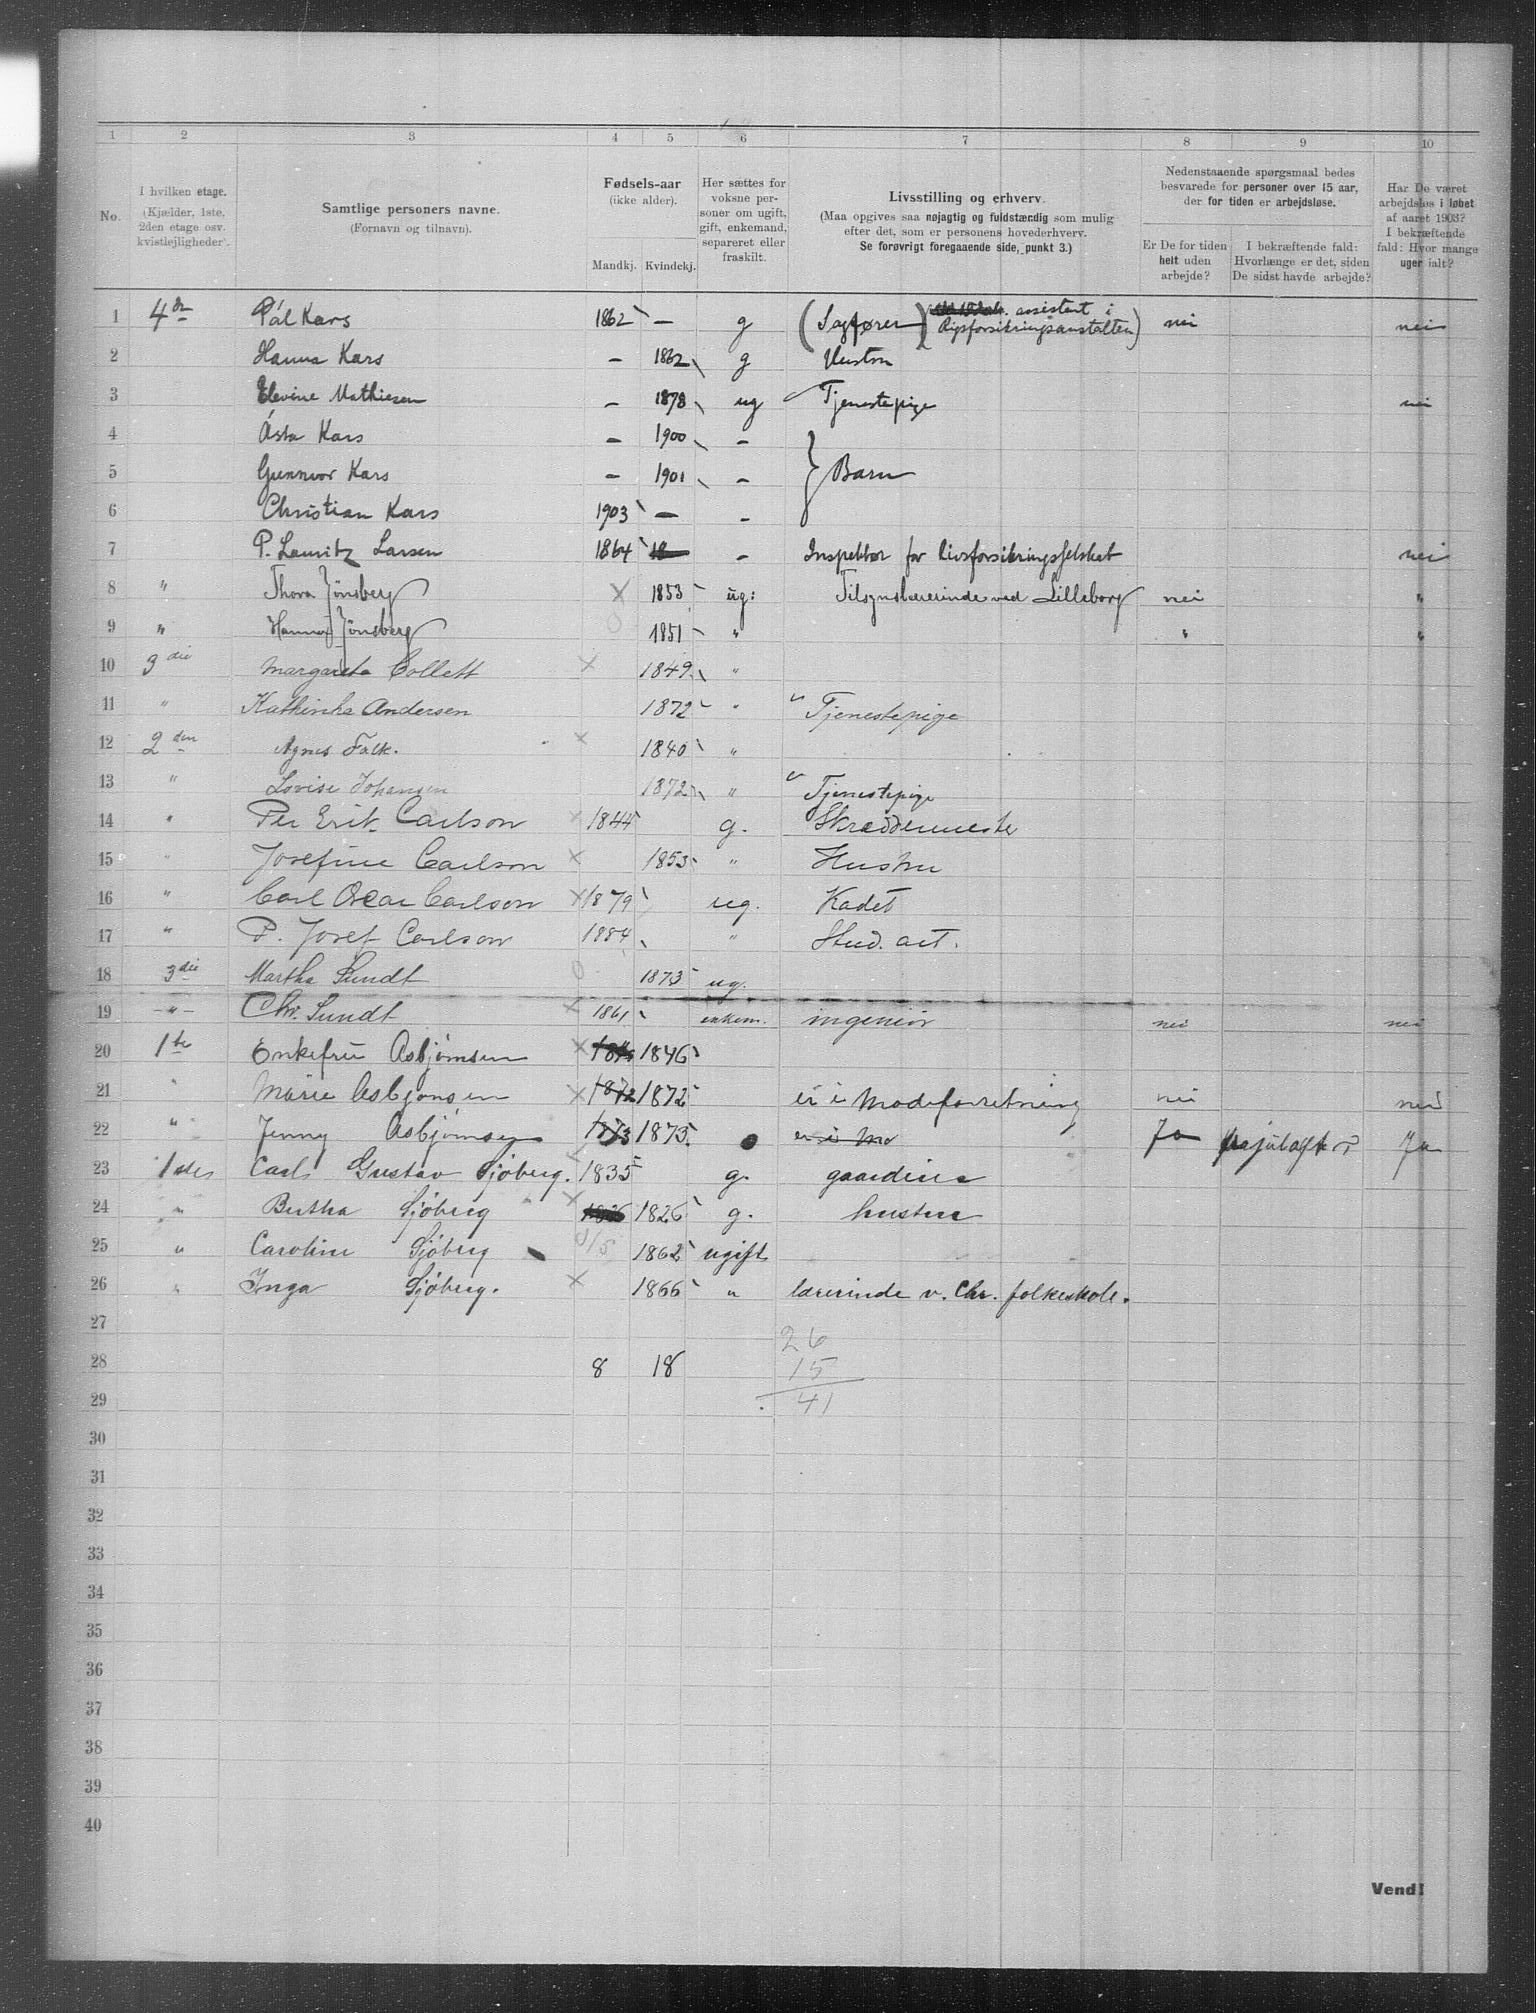 1 2 3 4 5 6 7 8 9 10
No.
I hvilken etage.
(Kjælder, 1ste,
2den etage osv.
kvistlejligheder).
Samtlige personers navne.
(Fornavn og tilnavn).
Fødsels-aar
(ikke alder).
Mandkj. Kvindekj.
Her sættes for
voksne per-
soner om ugift,
gift, enkemand,
separeret eller
fraskilt.
Livsstilling og erhverv.
(Maa opgives saa nøjagtig og fuldstændig som mulig
efter det, som er personens hovederhverv.
Se forøvrigt foregaaende side, punkt 3.)
Nedenstaaende spørgsmaal bedes
besvarede for personer over 15 aar,
der for tiden er arbejdsløse.
Er De for tiden
helt uden
arbejde?
I bekræftende fald:
Hvorlænge er det, siden
De sidst havde arbejde?
Har De været
arbejdsløs i løbet
af aaret 1903?
I bekræftende
fald: Hvor mange
uger ialt?
1 4de Pál Kars 1862 — g (Sagfører) assistent i Rigsforsikringsanstalten) nei nei
2 Hanna Kars — 1862 g Hustru
3 Elevine Mathiesen — 1878 ug Tjenestepige nei
4 Ásta Kars — 1900 —
5 Gunnvor Kars — 1901 — } Barn
6 Christian Kars 1903 — —
7 P. Lauritz Larsen 1864 18 — Inspektør for livsforsikringsselskab nei
8 " Thora Jönsberg X 1853 ug: Tilsynslærerinde ved Lilleborg nei "
9 " Hanna Jönsberg O 1851 " " "
10 3die Margarete Collett X 1849 "
11 " Kathinka Andersen 1872 " Tjenestepige
12 2den Agnes Falk. X 1840 "
13 " Lovise Johansen 1872 " Tjenestepige
14 " Per Erik Carlson X 1844 g. Skræddermester
15 " Josefine Carlson X 1853 " Hustru
16 " Carl Oscar Carlson X 1879 ug. Kadet
17 " P. Josef Carlson 1884 " Stud. art.
18 3die Martha Sundt O 1873 ug.
19 " Chr. Sundt X 1861 enkem. ingeniör nei nei
20 1te Enkefru Asbjørnsen X 1846
21 " Marie Asbjørnsen X 1872 1872 er i Modeforretning nei nei
22 " Jenny Asbjørnsen 1873 1873 er i Mo Ja fra juli Ja
23 1ste Carl Gustav Sjöberg. 1835 g. gaardeier
24 " Bertha Sjöberg X 1826 g. hustru
25 " Caroline Sjöberg 1862 ugift
26 " Inga Sjöberg. X 1866 " lærerinde v. Chr. folkeskole.
27 26
28 8 18 15
29 41
30
31
32
33
34
35
36
37
38
39
40
Vend!